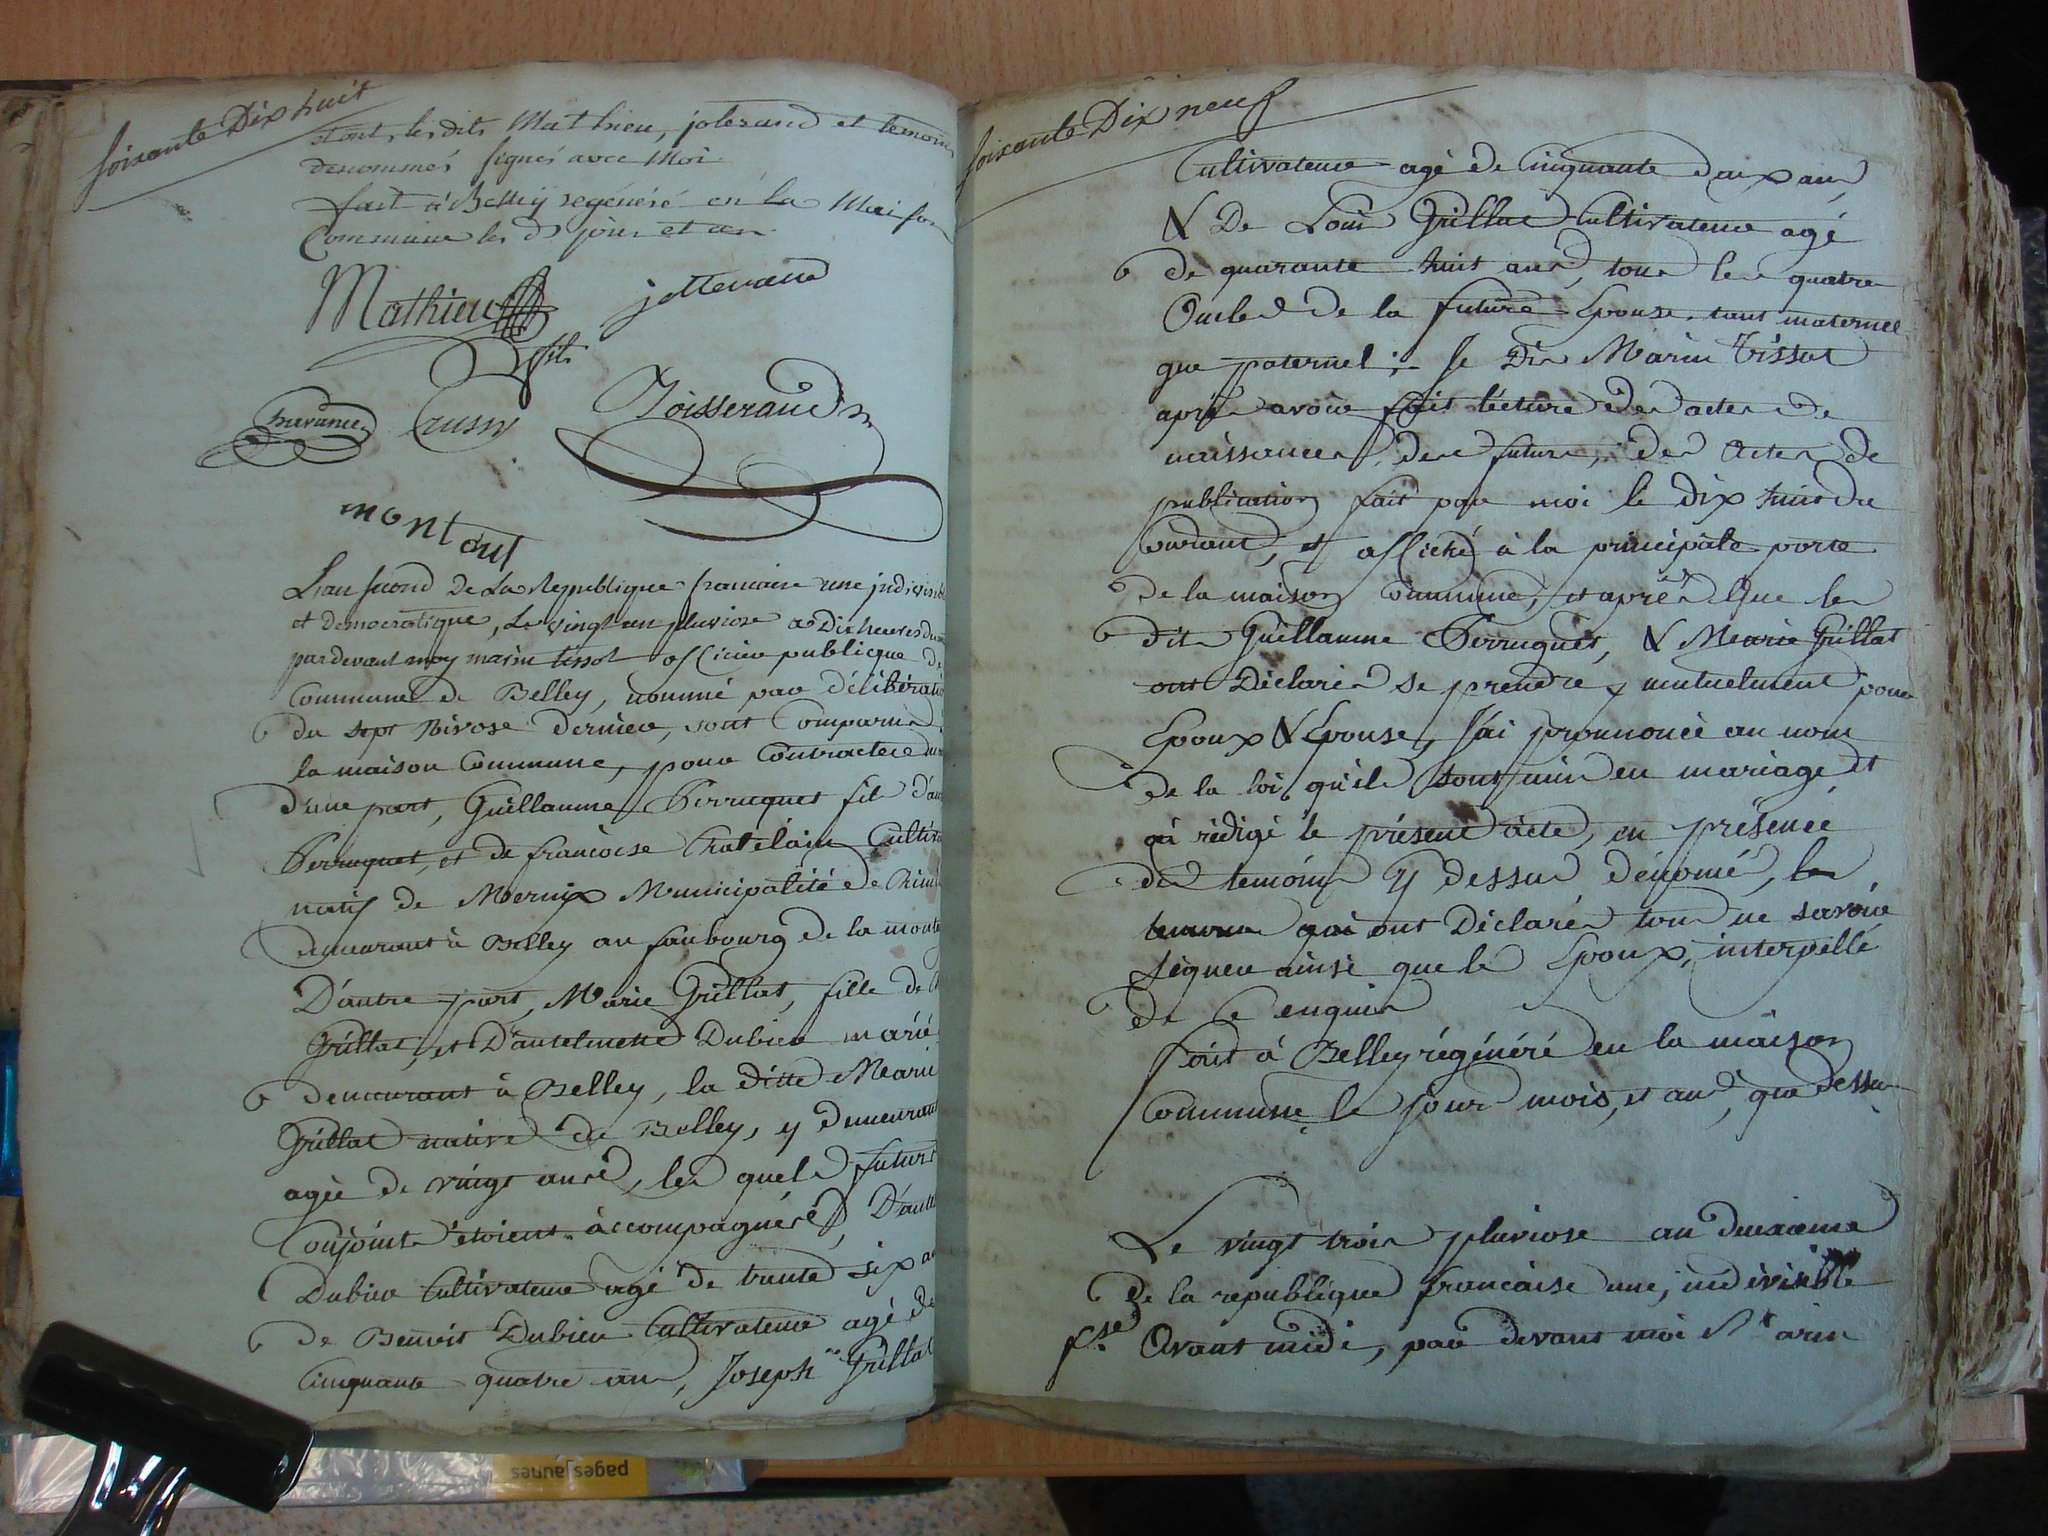 Soixante Dix huit
sont, lesdits Mathieu, joterand et temoins
denommés signés avec Moi
fait à Belley regénéré en La Maison
Commune les ds jour et an
Mathieu
jotterand
fils
Crussy
Toisserand
montaut
L'an second De La Republique francaise une indivisib
et democratique, Le vingt un pluviose a Dix heures du
pardevant moy marin tissot officier publicque de
Commune de Belley, nommé par délibératio
du sept Nivose dernier, sont Comparus
la maison Commune, pour Contracter
d'une part, Guillaume Perruquet fil d'an
Perruquet, et de francoise Chatelain Cultiv
natif de Mornix Municipalité de
demeurant à Belley au faubourg de la mont
D'autre part, Marie Grillat, fille de
Grillat, et D'antelmette Dubieu marié
demeurant à Belley, la ditte Marie
Grillat native de Belley, y demeurant
agée de vingt ans, les quels futurs
Conjoints étoient accompagnés, D'ant
Dubieu Cultivateur agé de trente six an
de Benoit Dubieu Cultivateur agé de
Cinquante quatre ans, Joseph Grillat
Soixante Dix neuf
Cultivateur agé de Cinquante deux ans
& De Louis Grillat Cultivateur agé
de quarante huit ans, tous les quatre
Oncles de la future Epouse, tant maternel
que paternel; Je Dis Marin Tissot
après avoir fait lecture des actes de
naissances des futurs, des actes de
publication fait par moi le dix huit du
Courant, et affiché à la principale porte
de la maison Commune, et après Que les
dits Guillaume Perruquet, & Marie Grillat
ont Déclarés se prendre mutuelment pour
Epoux & Epouse, J'ai prononcé au nom
de la loi qu'ils sont unis en mariage et
ai rédigé le présent acte, en présence
des temoins y dessus dénomé, les
temoins qui ont Déclarés tous ne savoir
signer ainsi que le Epoux, interpellé
de ce enquis
fait à Belley régénéré en la maison
Commune le jour mois, et an, que dessus
Le vingt trois pluviose an deuxieme
De la republique francaise une, indivisible
Avant midi, par devant moi Marin
pages jaunes